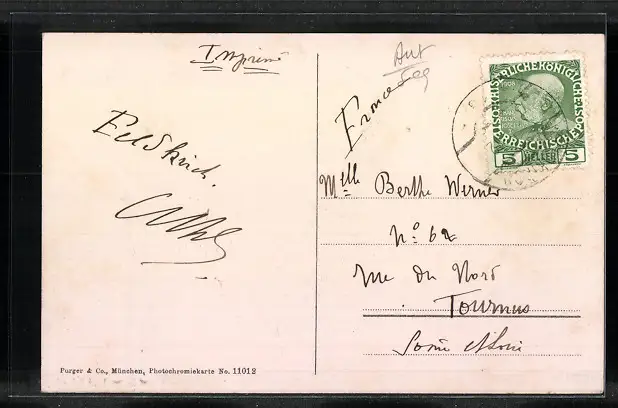 Imprimé
Aut
France
Feldkirch.
1908
KAISERLICHE KÖNIGLICHE ÖSTERREICHISCHE
5 HELLER 5
Mlle Berthe Werner
No 62
rue du Nord
Tournus
Saône et Loire
Purger & Co., München, Photochromiekarte No. 11012